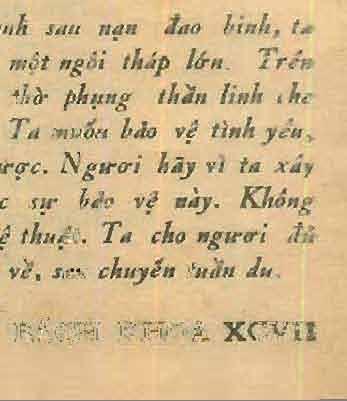 sau nạn đao binh, ta
một ngôi tháp lớn. Trên
thờ phụng thần linh che
Ta muốn bảo vệ tình yêu,
Ngươi hãy vì ta xây
sự bảo vệ này. Không
thuật. Ta cho ngươi đủ
về, sau chuyến tuần du.
BÁCH KHOA XCVII